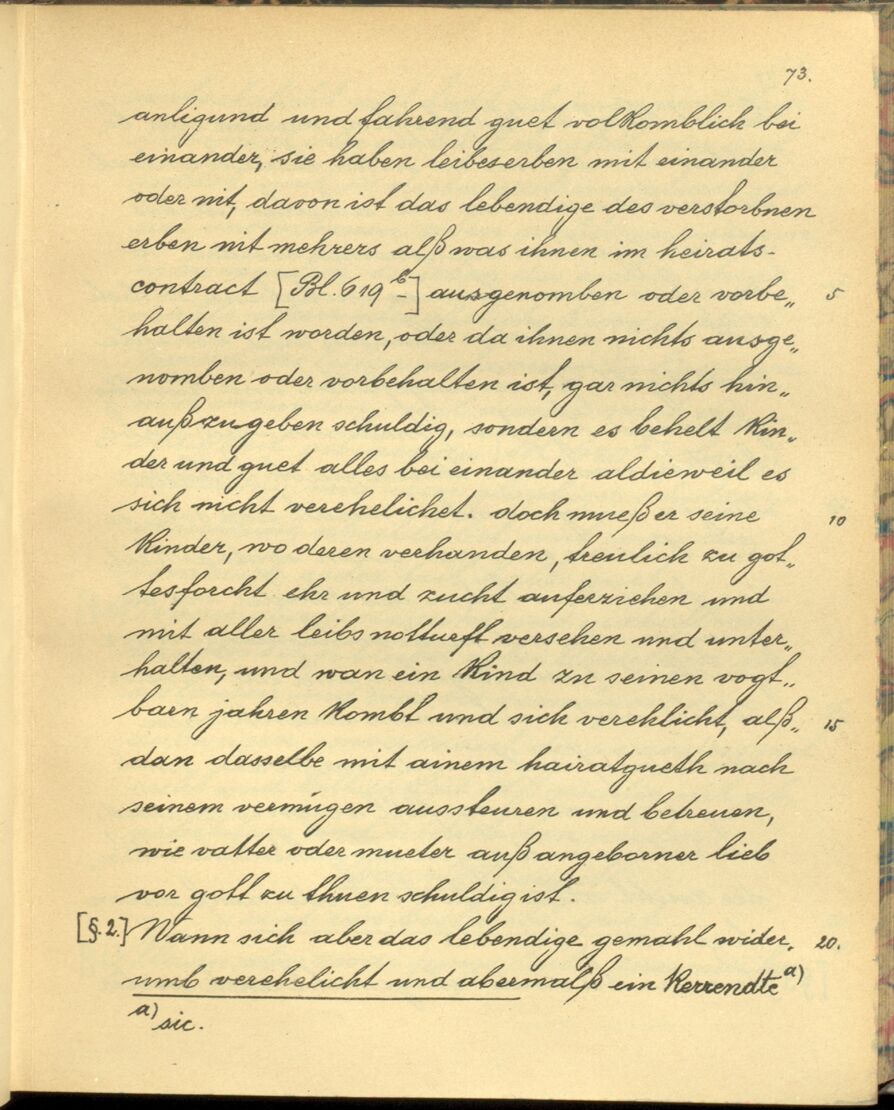 73.
anligund und fahrend guet volkomblich bei
einander, sie haben leibeserben mit einander
oder nit, davon ist das lebendige des verstorbnen
erben nit mehrers alß was ihnen im heirats-
contract [Bl. 619 b] ausgenomben oder vorbe„ 5
halten ist worden, oder da ihnen nichts ausge„
nomben oder vorbehalten ist, gar nichts hin„
außzugeben schuldig, sondern es behelt kin„
der und guet alles bei einander aldieweil es
sich nicht verehelichet. doch mueß er seine 10
kinder, wo deren verhanden, treulich zu got„
tesforcht ehr und zucht auferziehen und
mit aller leibs notturft versehen und unter„
halten, und wan ein kind zu seinen vogt„
barn jahren kombt und sich verehlicht, alß„ 15
dan dasselbe mit ainem hairatgueth nach
seinem vermügen aussteuren und betreuen,
wie vatter oder mueter auß angeborner lieb
vor gott zu thuen schuldig ist.
[§. 2.] Wann sich aber das lebendige gemahl wider„ 20.
umb verehelicht und abermalß ein Kerrendte a)
a) sic.